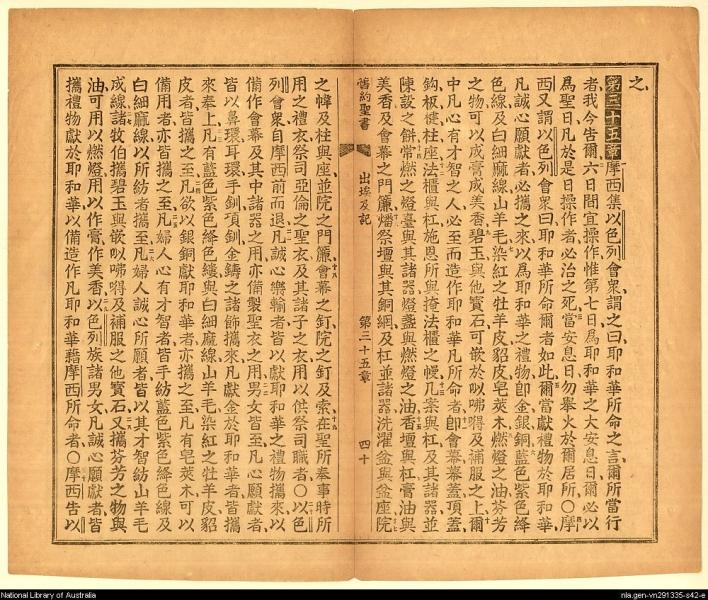 之、
第三十五章摩西集以色列會衆謂之曰耶和華所命之言爾所當行
者我今告爾六日間宜操作惟第七日爲耶和華之大安息日爾必以
爲聖日凡於是日操作者必治之死當安息日勿舉火於爾居所〇摩
西又謂以色列會衆曰耶和華所命爾者如此爾當獻禮物於耶和華
凡誠心願獻者必攜之來以爲耶和華之禮物卽金銀銅藍色紫色絳
色線及白細麻線山羊毛染紅之牡羊皮貂皮皂莢木燃燈之油芬芳
之物可以成膏成美香碧玉與他寶石可嵌於𠱥咈得及補服之上爾
中凡心有才智之人必至而造作耶和華凡所命者卽會幕幕蓋頂蓋
鈎板楗柱座法櫃與杠施恩所與掩法櫃之幔几案與杠及其諸器並
陳設之餅常燃之燈臺與其諸器燈盞與燃燈之油香壇與杠膏油與
美香及會幕之門簾燔祭壇與其銅網及杠並諸器洗濯盆與盆座院
舊約聖書 出埃及記 第三十五章 四十
之幃及柱與座並院之門簾會幕之釘院之釘及索在聖所奉事時所
用之禮衣祭司亞倫之聖衣及其諸子之衣用以供祭司職者〇以色
列會衆自摩西前而退凡誠心樂輸者皆以獻耶和華之禮物攜來以
備作會幕及其中諸器之用亦備製聖衣之用男女皆至凡心願獻者
皆以鼻環耳環手釧項釧金鑄之諸飾攜來凡獻金於耶和華者皆攜
來奉上凡有藍色紫色絳色縷與白細麻線山羊毛染紅之牡羊皮貂
皮者皆攜之至凡欲以銀銅獻耶和華者亦攜之至凡有皂莢木可以
備用者亦皆攜之至凡婦人心有才智者皆手紡藍色紫色絳色線及
白細麻線以所紡者攜至凡婦人誠心所願者皆以其才智紡山羊毛
成線諸牧伯攜碧玉與嵌𠱥咈得及補服之他寶石又攜芬芳之物與
油可用以燃燈用以作膏作美香以色列族諸男女凡誠心願獻者皆
攜禮物獻於耶和華以備造作凡耶和華藉摩西所命者〇摩西告以
National Library of Australia
nla.gen-vn291335-s42-e